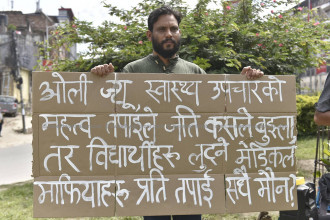 ओली ज्यू स्वास्थ्य उपचारको
महत्व तपाइले जति कसले बुझ्ला
तर विद्यार्थीहरू लुट्ने मेडिकल
माफियाहरु प्रति तपाई सधै मौन?